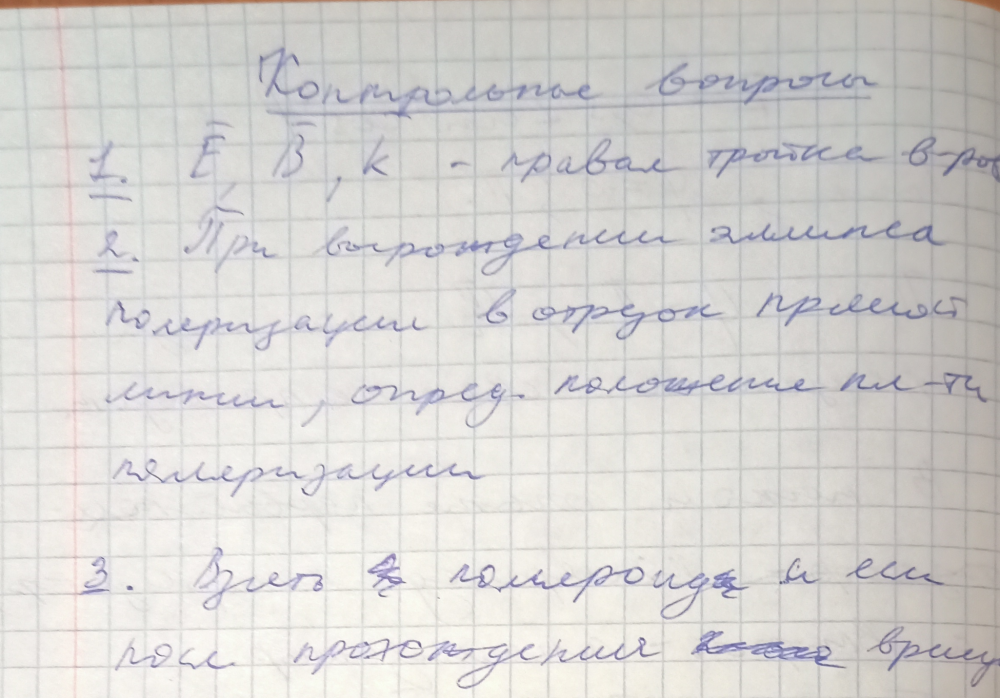 Контрольные вопросы
1. E̅, B̅, k - правая тройка в-ров
2. При вырождении эллипса
поляризации в отрезок прямой
линии, опред. положение пл-ти
поляризации
3. Взять поляроид и если
после прохождения